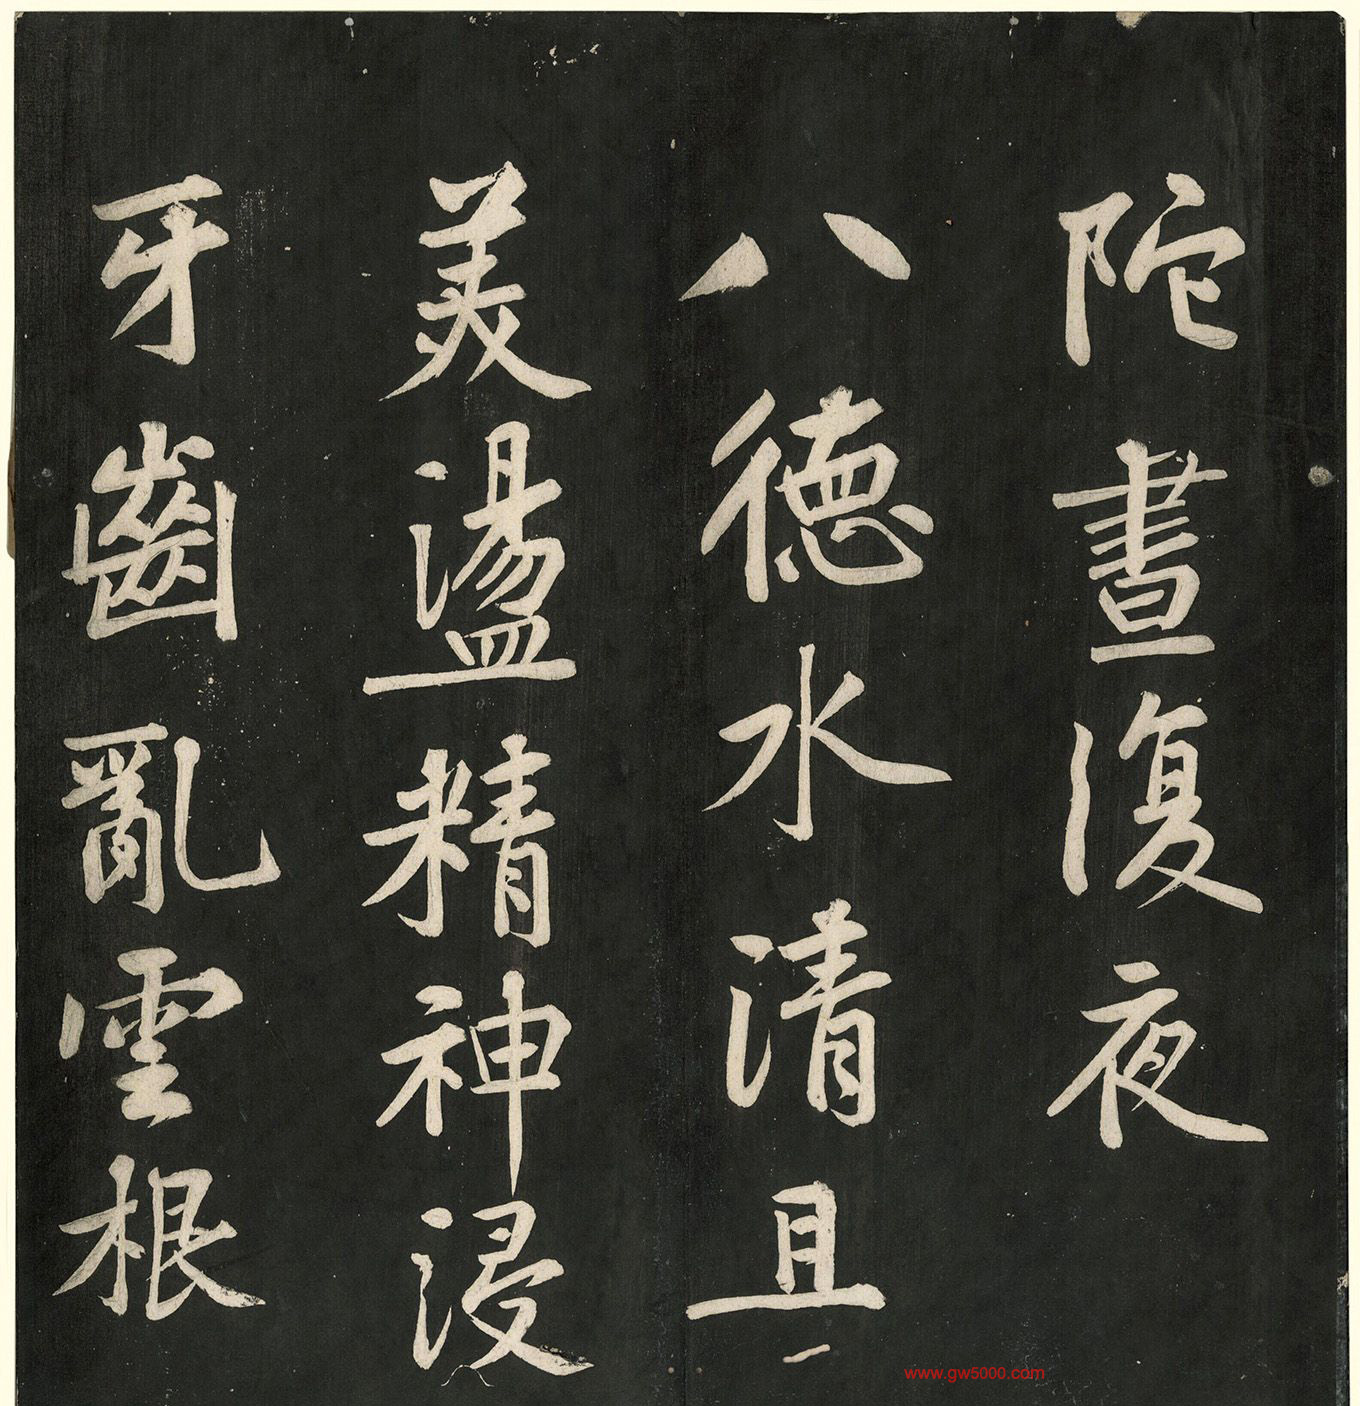 陀晝復夜
八德水清且
美盪精神浸
牙齒亂雲根
www.gw5000.com